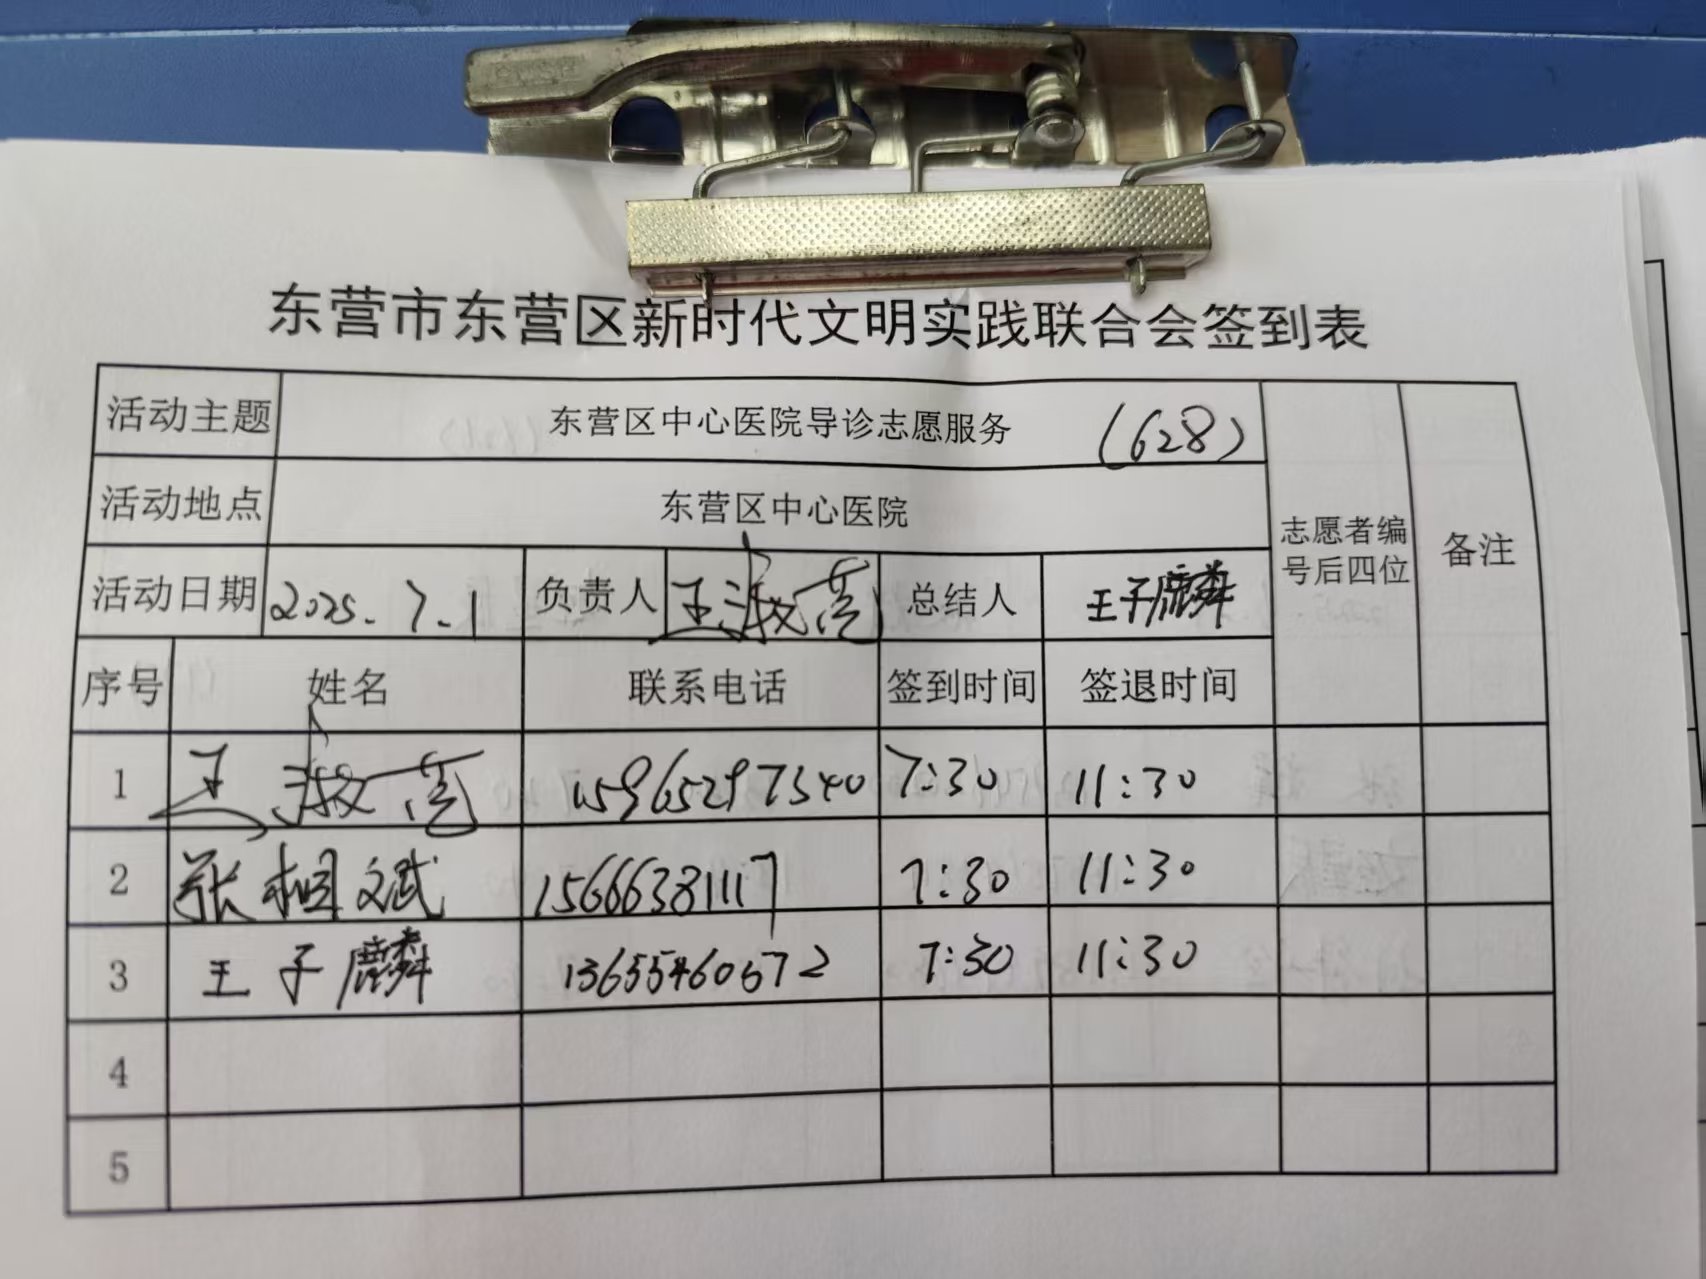 东营市东营区新时代文明实践联合会签到表
活动主题 东营区中心医院导诊志愿服务 (628)
活动地点 东营区中心医院
志愿者编号后四位 备注
活动日期 2025.7.1 负责人 王淑营 总结人 王子麟
序号 姓名 联系电话 签到时间 签退时间
1 王淑营 15965297340 7:30 11:30
2 张相斌 15666381117 7:30 11:30
3 王子麟 13655460572 7:30 11:30
4
5